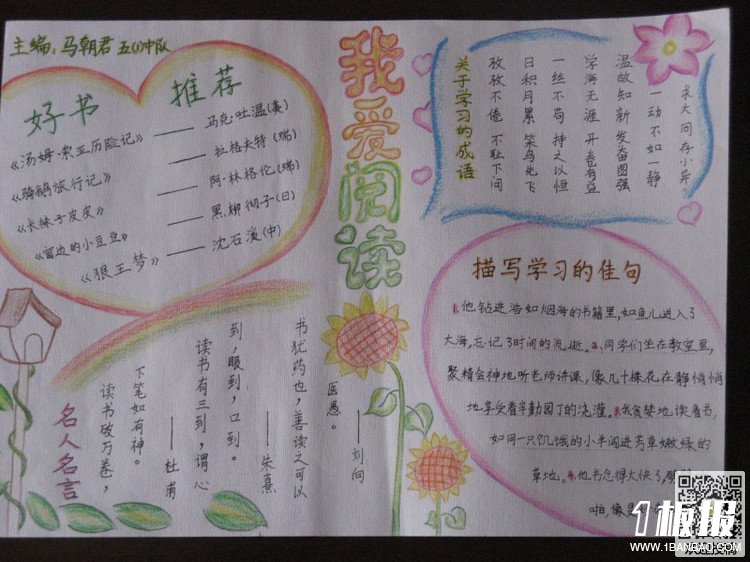 主编：马朝君 五(1)中队
好书 推荐
《汤姆·索亚历险记》——马克·吐温(美)
《骑鹅旅行记》——拉格夫特(瑞)
《长袜子皮皮》——阿·林格伦(瑞)
《窗边的小豆豆》——黑柳彻子(日)
《狼王梦》——沈石溪(中)
我爱阅读
关于学习的成语
孜孜不倦 不耻下问
日积月累 笨鸟先飞
一丝不苟 持之以恒
学海无涯 开卷有益
温故知新 发奋图强
一动不如一静
求大同存小异
描写学习的佳句
1.他钻进浩如烟海的书籍里,如鱼儿进入了
大海,忘记了时间的流逝。2.同学们坐在教室里,
聚精会神地听老师讲课,像几十棵花在静悄悄
地享受着辛勤园丁的浇灌。3.我贪婪地读着书,
如同一只饥饿的小羊闯进芳草嫩绿的
草地。4.他书念得太快了,
啪,像是
名人名言
读书破万卷，
下笔如有神。
——杜甫
读书有三到，谓心
到，眼到，口到。
——朱熹
书犹药也，善读之可以
医愚。——刘向
1板报
WWW.1BANBAO.COM